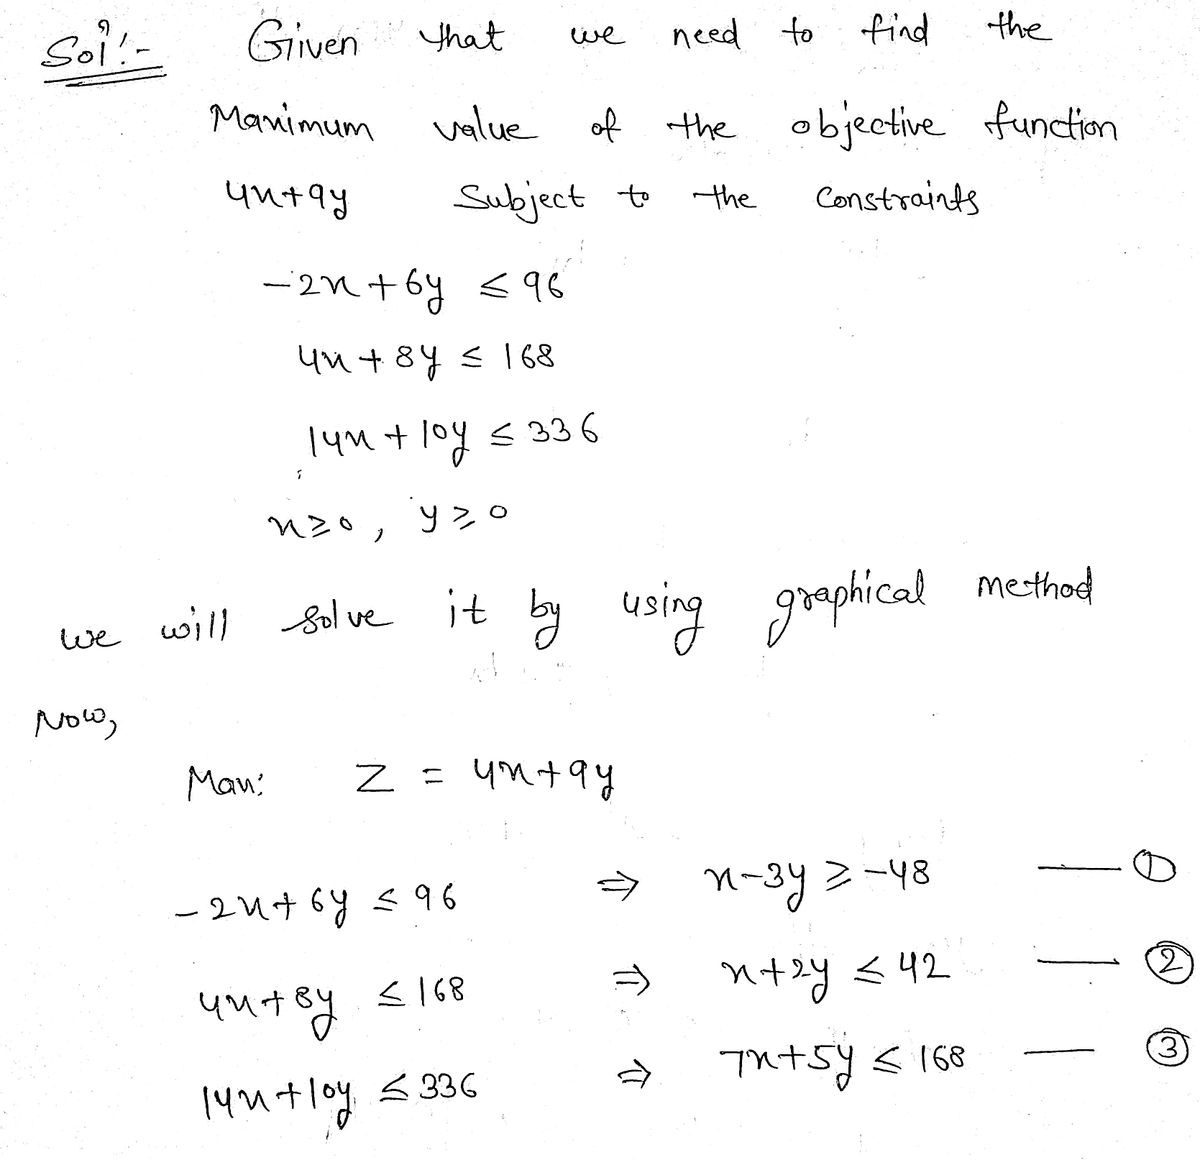 Sol:- Given that we need to find the
Maximum value of the objective function
4x+9y Subject to the Constraints
-2x+6y ≤ 96
4x+8y ≤ 168
14x+10y ≤ 336
x≥0, y≥0
we will solve it by using graphical method
Now,
Max: Z = 4x+9y
-2x+6y ≤ 96 ⇒ x-3y ≥ -48 — ①
4x+8y ≤ 168 ⇒ x+2y ≤ 42 — ②
14x+10y ≤ 336 ⇒ 7x+5y ≤ 168 — ③